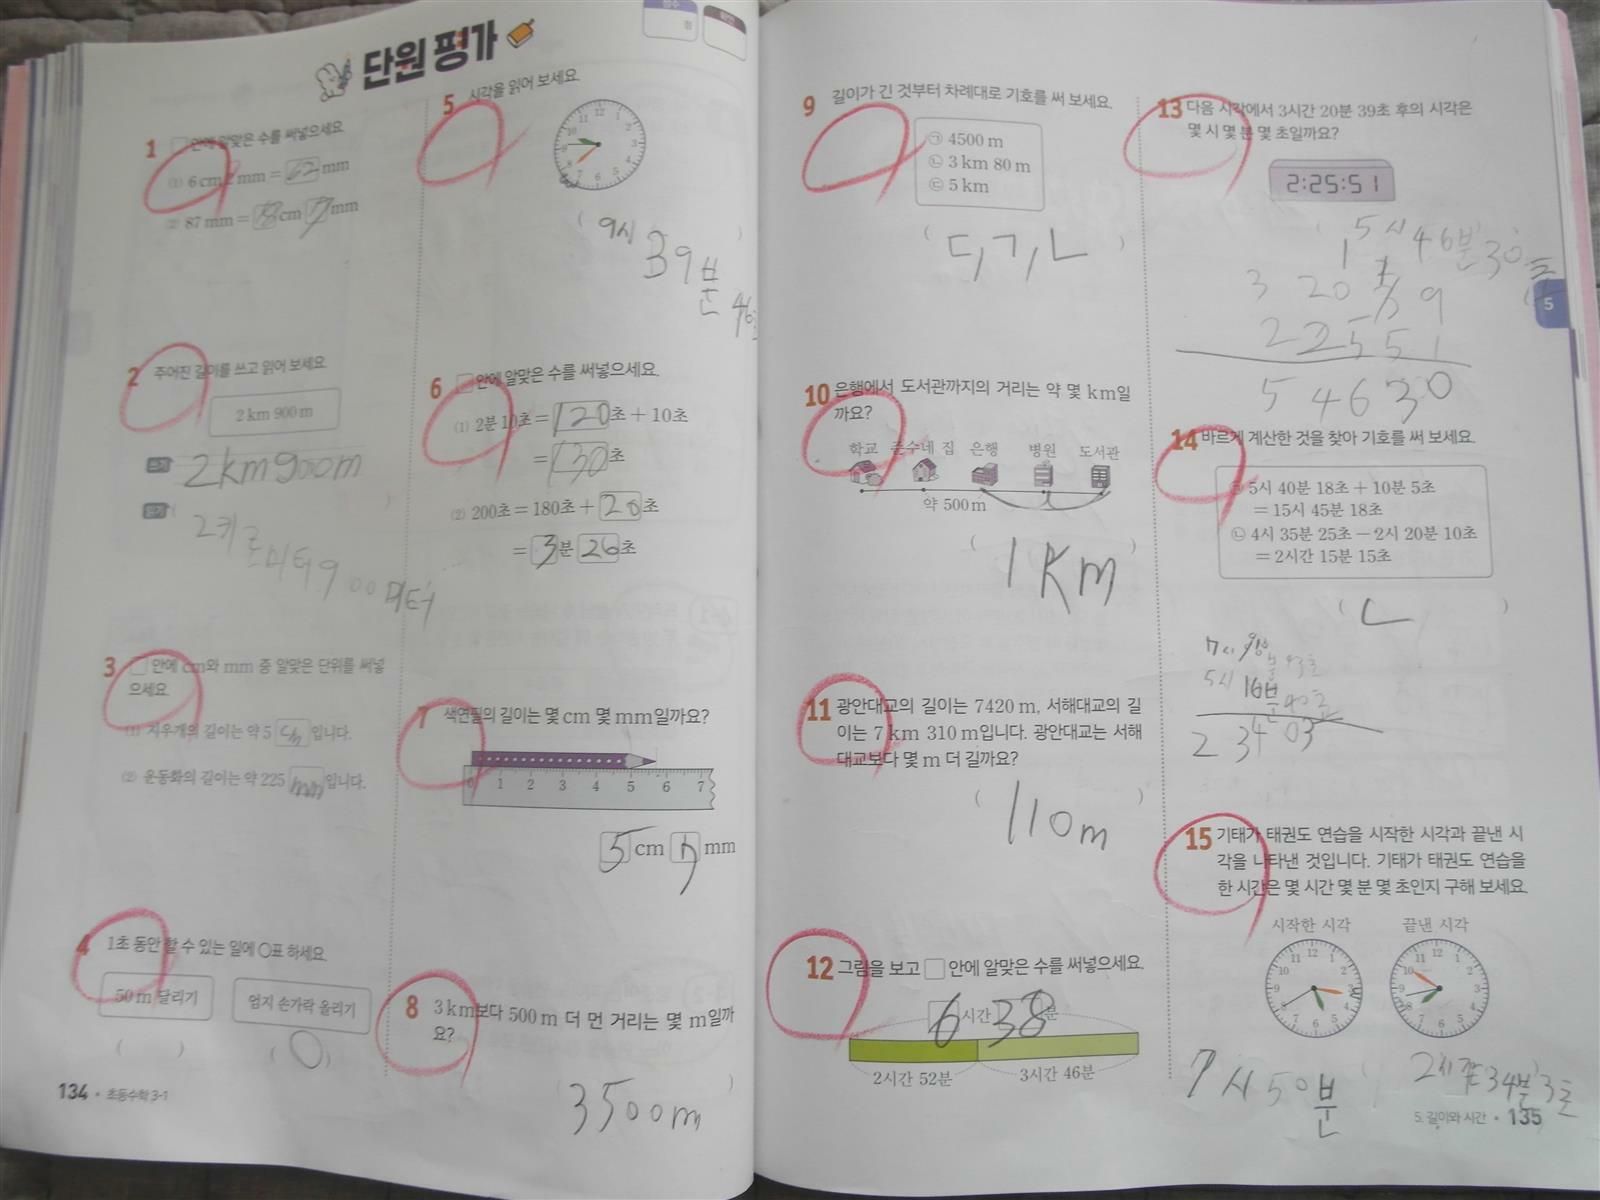 단원 평가
점수
점
확인
1 □ 안에 알맞은 수를 써넣으세요.
(1) 6 cm 2 mm = 62 mm
(2) 87 mm = 8 cm 7 mm
2 주어진 길이를 쓰고 읽어 보세요.
2 km 900 m
쓰기 2km 900m
읽기 (
2키로미터 900미터
3 □ 안에 cm와 mm 중 알맞은 단위를 써넣
으세요.
(1) 지우개의 길이는 약 5 cm 입니다.
(2) 운동화의 길이는 약 225 mm 입니다.
4 1초 동안 할 수 있는 일에 ○표 하세요.
50 m 달리기
엄지 손가락 올리기
( ) ( ○ )
134 • 초등수학 3-1
5 시각을 읽어 보세요.
( 9시 39분 )
6 □ 안에 알맞은 수를 써넣으세요.
(1) 2분 10초 = 120 초 + 10초
= 130 초
(2) 200초 = 180초 + 20 초
= 3 분 20 초
7 색연필의 길이는 몇 cm 몇 mm일까요?
0 1 2 3 4 5 6 7
5 cm mm
8 3 km보다 500 m 더 먼 거리는 몇 m일까
요?
3500m )
9 길이가 긴 것부터 차례대로 기호를 써 보세요.
㉠ 4500 m
㉡ 3 km 80 m
㉢ 5 km
( ㄷ, ㄱ, ㄴ )
10 은행에서 도서관까지의 거리는 약 몇 km일
까요?
학교 준수네 집 은행 병원 도서관
약 500 m
( 1 km )
11 광안대교의 길이는 7420 m, 서해대교의 길
이는 7 km 310 m입니다. 광안대교는 서해
대교보다 몇 m 더 길까요?
( 110m )
12 그림을 보고 □ 안에 알맞은 수를 써넣으세요.
6 시간 38 분
2시간 52분 3시간 46분
13 다음 시각에서 3시간 20분 39초 후의 시각은
몇 시 몇 분 몇 초일까요?
2:25:51
( 5시 46분 30초
1 1
3 20 39
2 25 51
5 46 30
5
14 바르게 계산한 것을 찾아 기호를 써 보세요.
㉠ 5시 40분 18초 + 10분 5초
= 15시 45분 18초
㉡ 4시 35분 25초 − 2시 20분 10초
= 2시간 15분 15초
( ㄴ )
5시 16분 40초
2 34 03
15 기태가 태권도 연습을 시작한 시각과 끝낸 시
각을 나타낸 것입니다. 기태가 태권도 연습을
한 시간은 몇 시간 몇 분 몇 초인지 구해 보세요.
시작한 시각 끝낸 시각
7시 50분
34분 3초
5. 길이와 시간 • 135